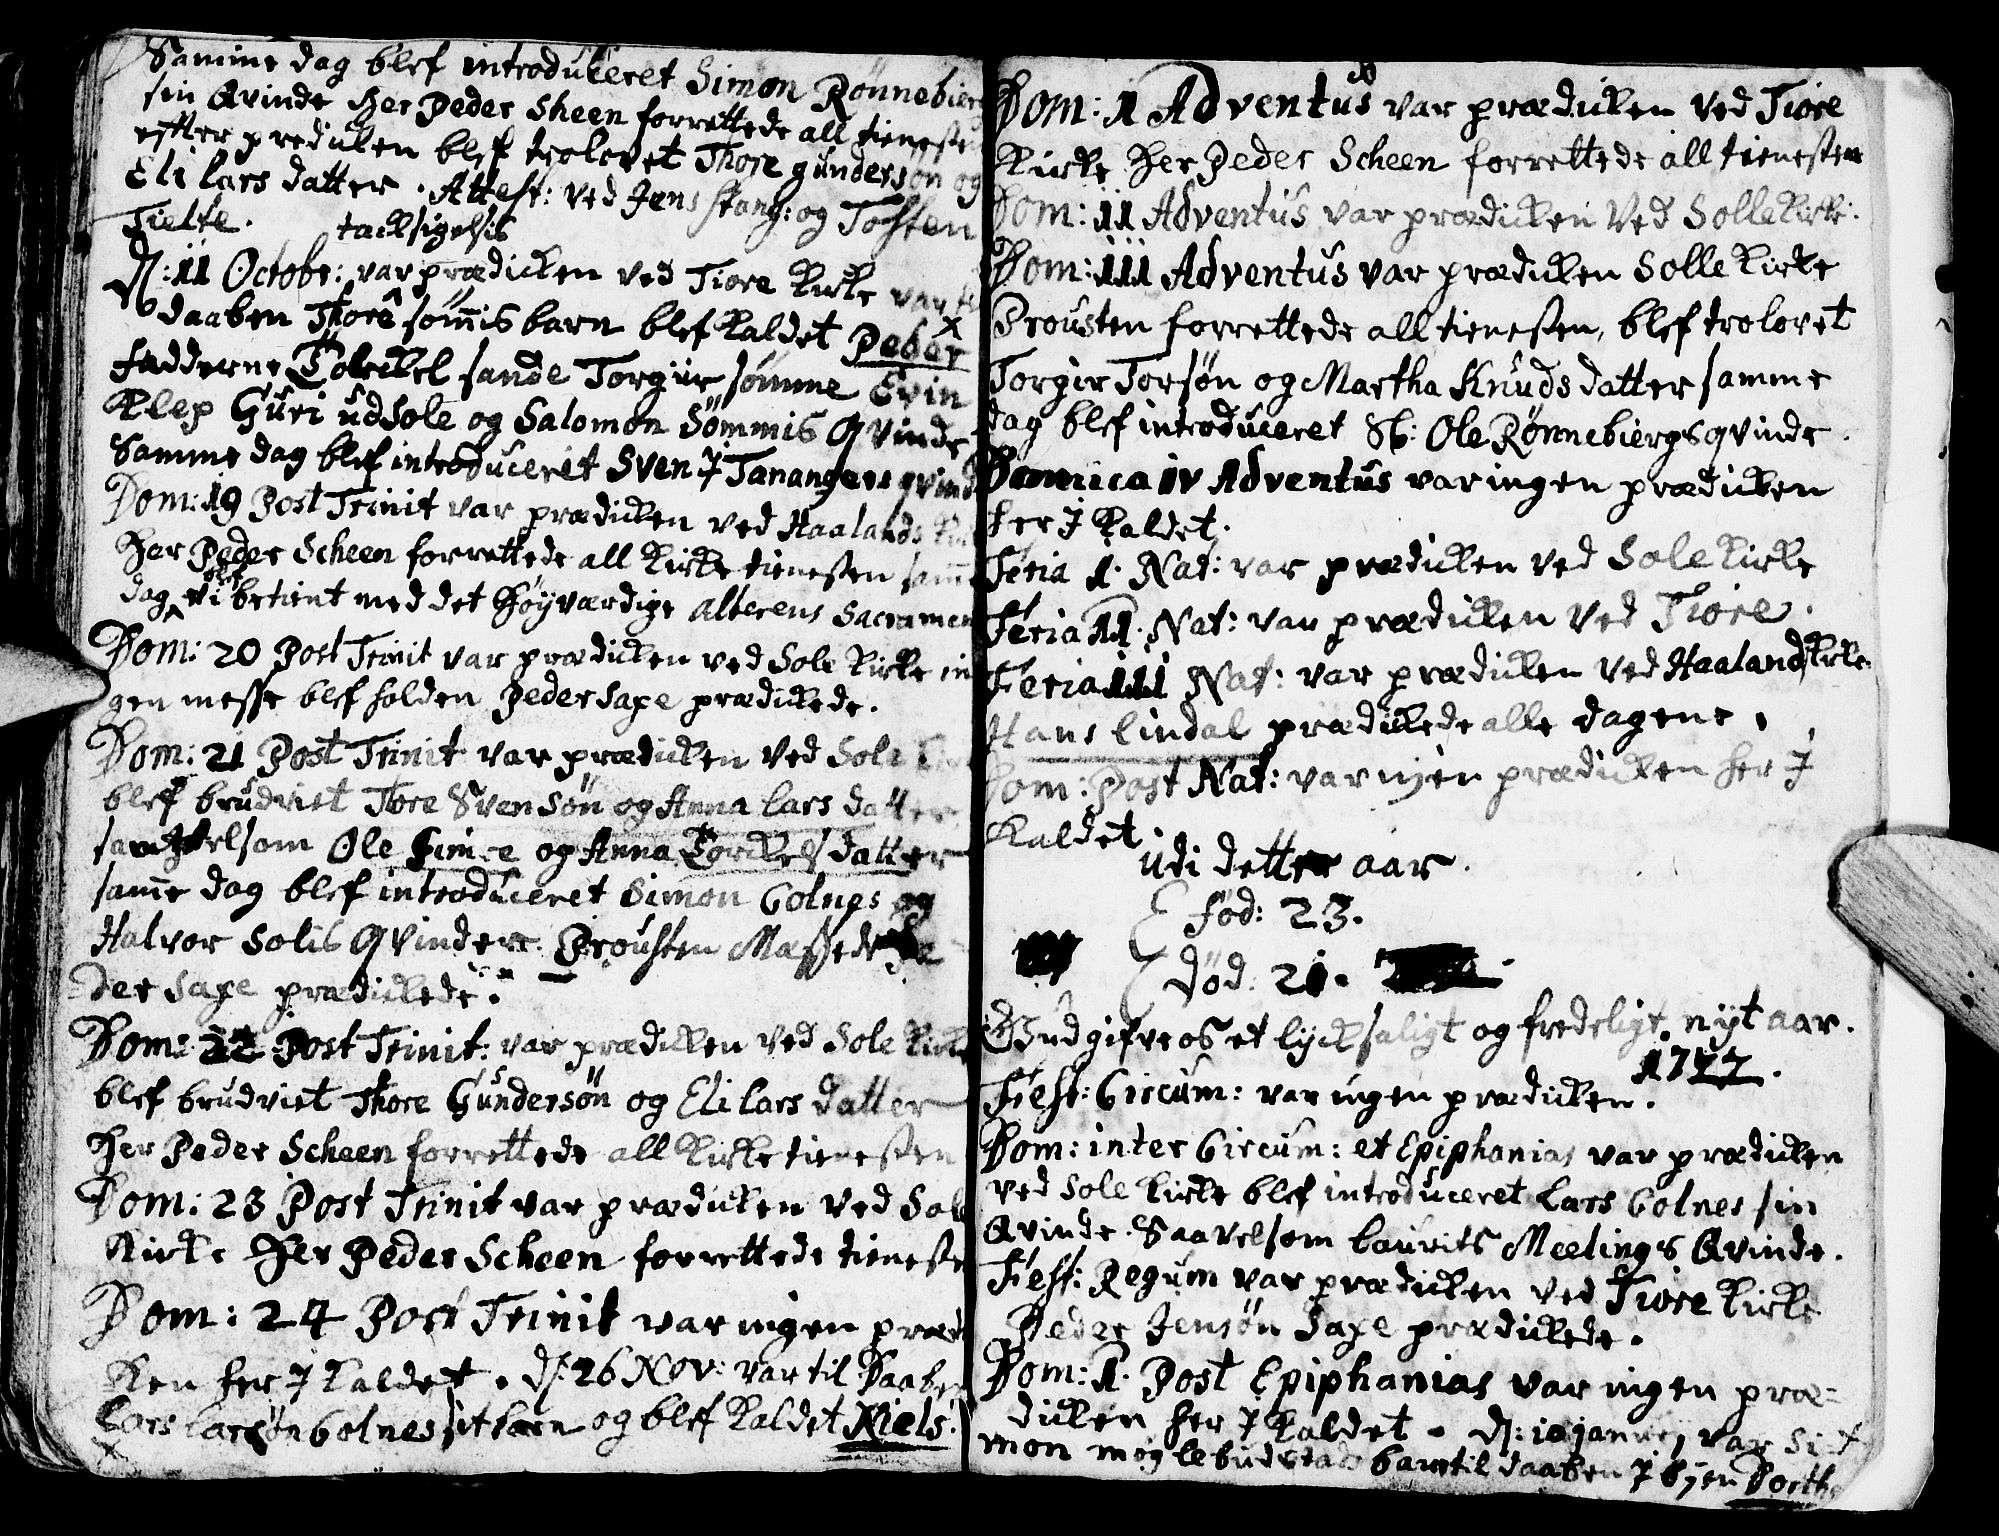 Samme dag blef introduceret Simon Rønnebierg
sin Qvinde Her Peder Sheen forrettede all tienesten
effter prediken blef trolovet Thore gunderson og
Eli lars datter. Attest: ved Jens stang: og Tosten
Tielte. tacksigelsis
D: 11 Octobr: var prædicken ved Tiore Kirke var til
daaben Thore sømis barn blef kaldet Peder
fadderne Torckel sande Torgiir sømme Evin
Klep Guri udsole og Salomon Sømmis Qvinde
Samme dag blef introduceret Sven J Tanangers qvinde
Dom: 19 Post Trinit var prædicken ved Haalands
Her Peder Scheen forrettede all Kirke tienesten samme
dag blef vi betient med det Høyværdige alterens Sacramen
Dom: 20 Post Trinit var prædicken ved Sole Kirke in
gen messe blef holden Peder Saxe prædickede.
Dom: 21 Post Trinit var prædicken ved Sole
blef brudviet Tore Svensøn og Anna lars datter
samt velsom Ole og Anna Torckels datter
samme dag blef introduceret Simon Golnes og
Halvor Solis Qvinder. Prousten Messede Pe
der Saxe prædickede.
Dom: 22 Post Trinit: var prædicken ved Sole Kirke
blef brudviet Thore Gundersøn og Eli lars datter
Her Peder Scheen forrettede all Kirke tienesten
Dom: 23 Post Trinit var prædicken ved Sole
Kirke Her Peder Scheen forrettede tieneste
Dom: 24 Post Trinit var ingen prædi
ken her J Kaldet. D: 26 Nov: var til Daaben
Lars larsøn Golnes sit barn og blef kaldet Niels.
Dom: 1 Adventus var prædicken ved Tiore
Kirke Her Peder Scheen forrettede all tienesten
Dom: 11 Adventus var prædicken ved Solle Kirke.
Dom: 111 Adventus var prædicken Solle Kirke
Prousten forrettede all tienesten, blef trolovet
Torgir Torsøn og Martha Knuds datter samme
dag blef introduceret Sl: Ole Rønnebiergs qvinde.
Domica iv Adventus var ingen prædicken
her J Kaldet.
Feria 1. Nat: var prædicken ved Sole Kirke
Feria 11. Nat: var prædicken ved Tiore.
Feria 111 Nat: var prædicken ved Haalands Kirke
Hans lindal prædickede alle dagene.
Dom: Post Nat: var ingen prædicken her J
Kaldet
udi dette aar.
fød: 23.
død: 21.
Gud gifve os et lycksaligt og fredeligt nyt aar.
1722.
Fiest: Circum: var ingen prædicken.
Dom: inter Circum: et Epiphanias var prædicken
ved Sole Kirke blef introduceret Lars Golnes sin
Qvinde. Saavelsom Laurits Meelings Qvinde.
Fiest: Regum var prædicken ved Tiore Kirke
Peder Jensøn Saxe prædickede.
Dom: 1. Post Epiphanias var ingen præ=
dicken her J Kaldet. D: 10 januarj var Si
mon barn til daaben J byen Dorthe